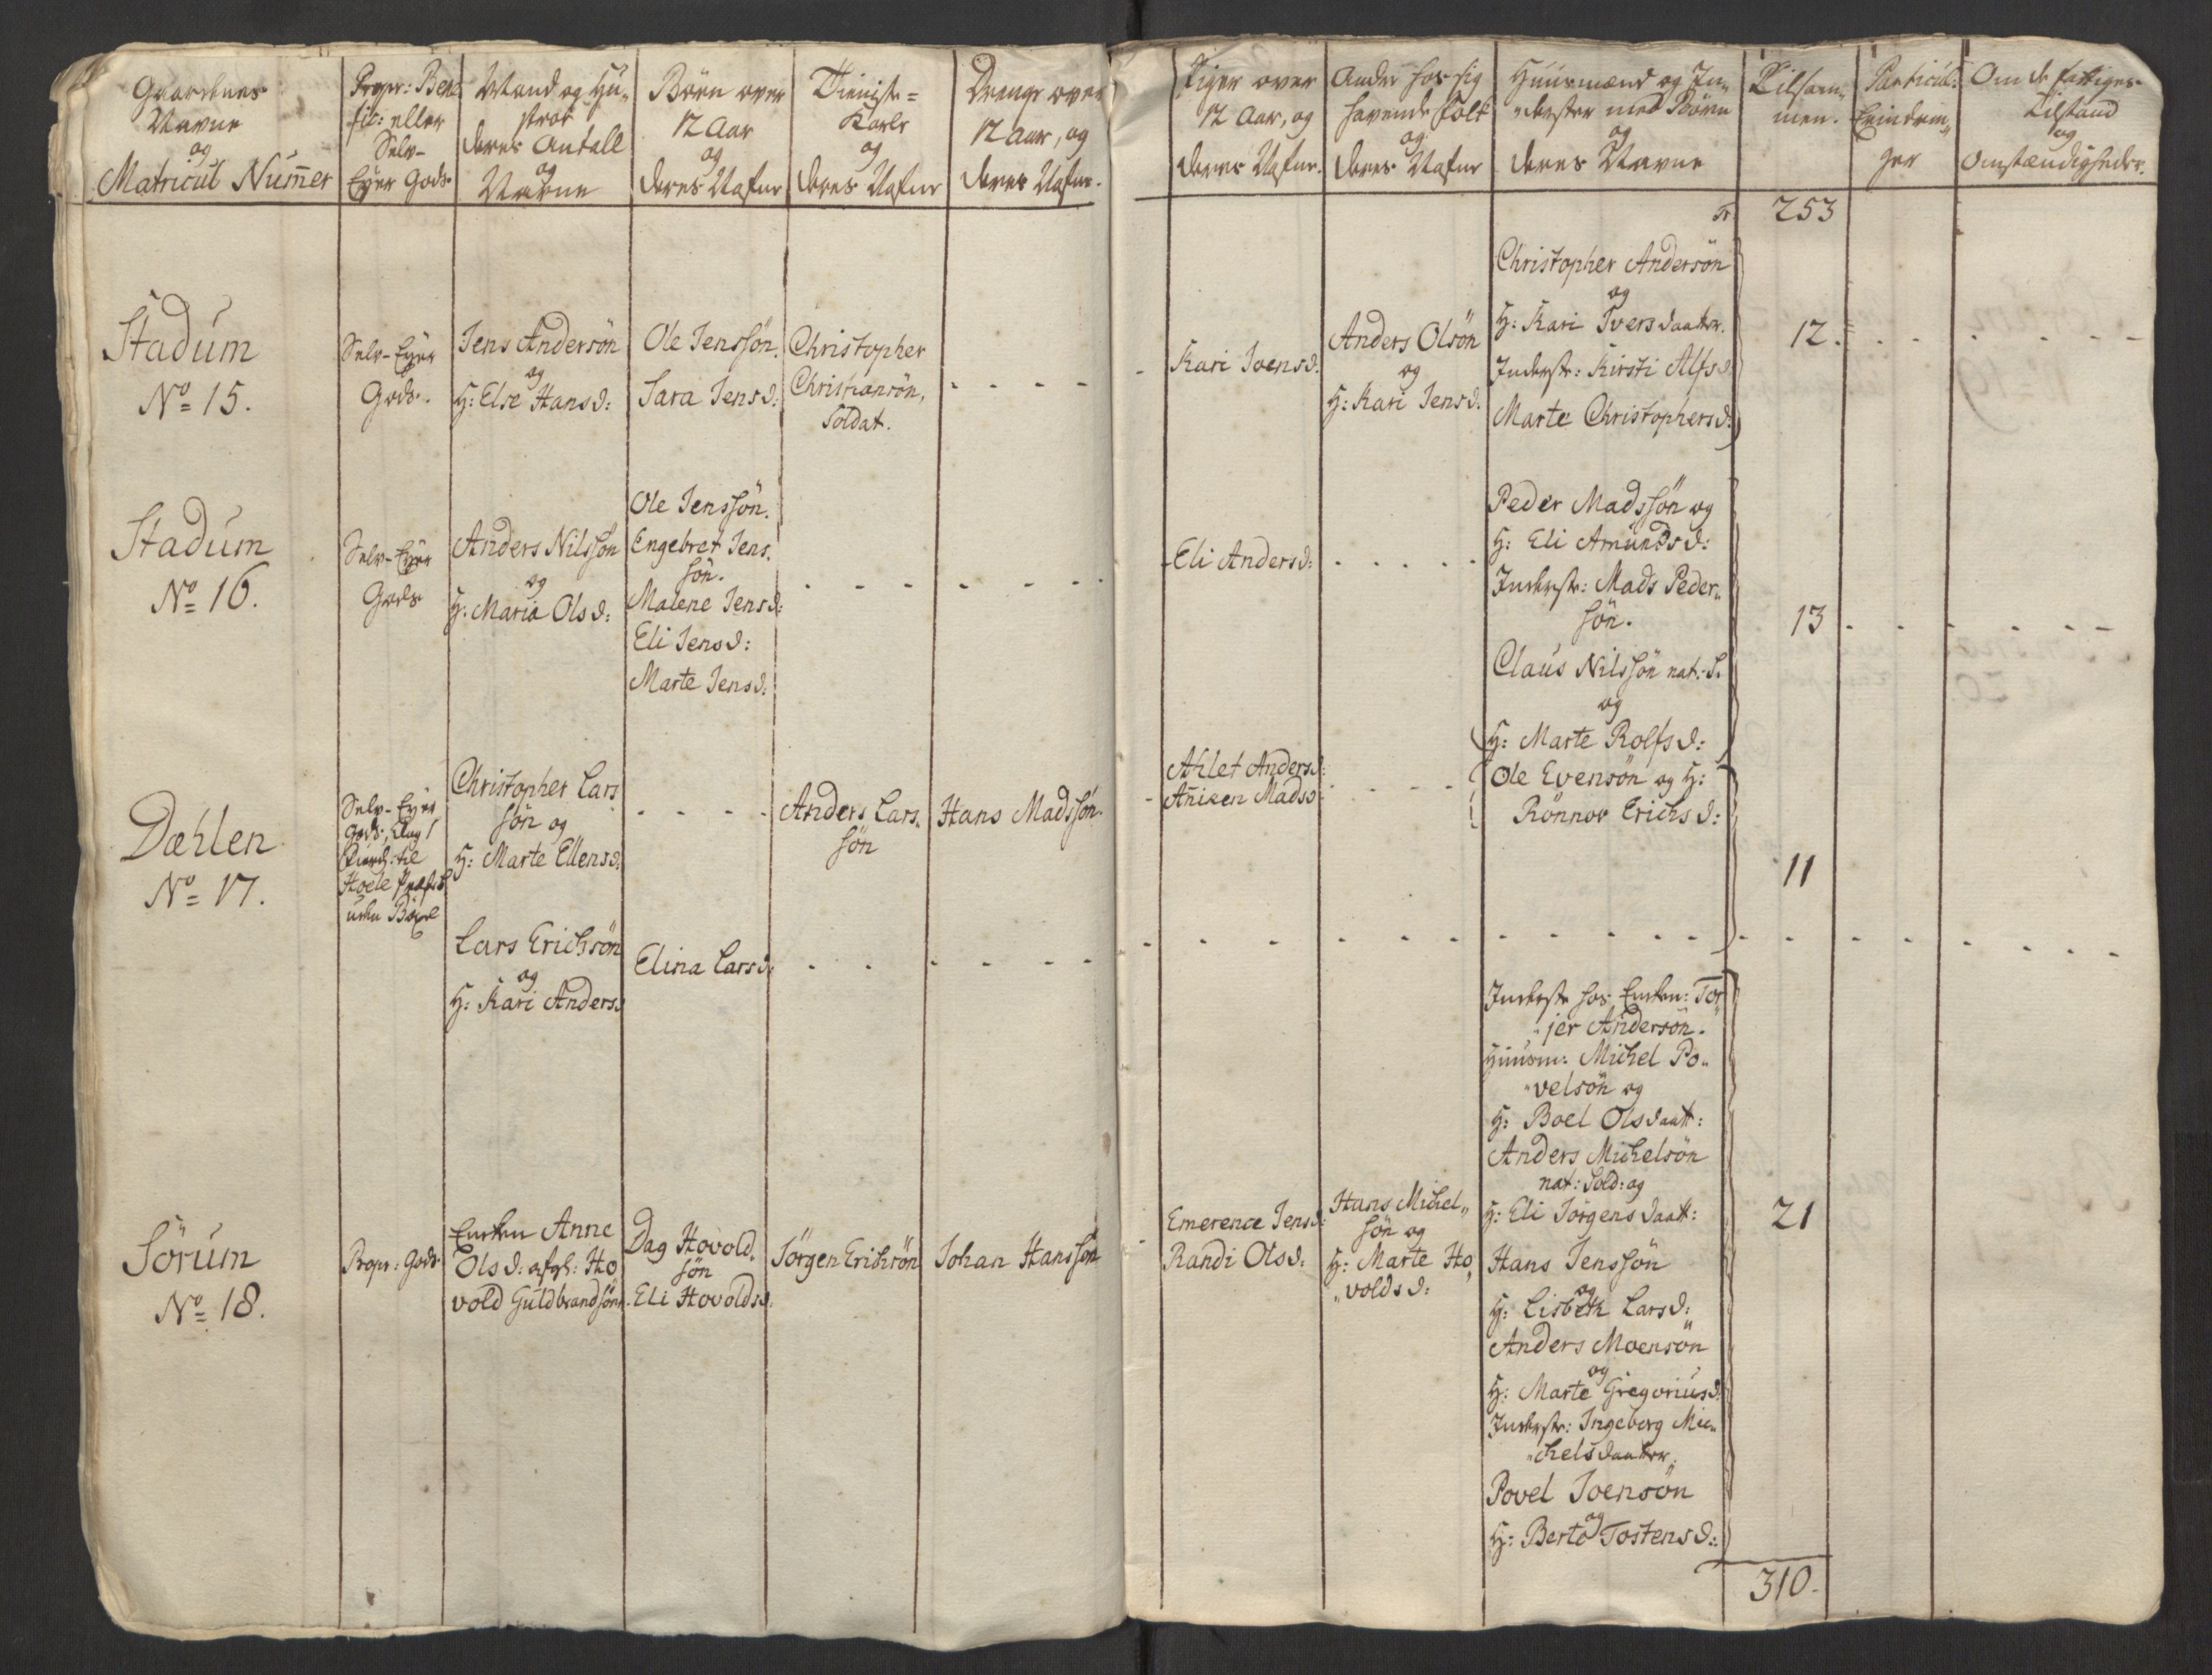 Gaardenes
Navne
og
Matricul Nummer
Propr: Bene
fic: eller
Selv-
Eyer Gods
Mand og Hu„
stroe
deres Antall
og
Navne
Børn over
12 Aar
og
deres Nafne
Tieniste=
Karle
og
deres Nafne
Drenge over
12 Aar, og
deres Nafne.
Piger over
12 Aar, og
deres Nafne.
Andre hos sig
havende Folk
og
deres Nafne
Huusmænd og In„
derster med Børn
og
deres Navne
Tilsam„
men.
Particul:
Erindrin„
ger
Om de fattiges
Tilstand
og
Omstændigheder.
253
Stadum
No 15.
Selv-Eyer
Gods.
Jens Andersön
og
H: Else Hansd:
Ole Jenssön.
Sara Jensd:
Christopher
Christiansön,
Soldat.
Kari Joensd.
Anders Olsön
og
H: Kari Jensd.
Christopher Andersön
og
H: Kari Iversdaatter.
Inderste: Kirsti Alfsd.
Marte Christophersd:
12.
Stadum
No 16.
Selv-Eyer
Gods
Anders Nilssön
og
H: Maria Olsd:
Ole Jenssön.
Engebret Jens,
sön.
Malene Jensd:
Eli Jensd:
Marte Jensd:
Eli Andersd:
Peder Madssön og
H: Eli Amundsd:
Inderste: Mads Peder„
sön.
Claus Nilssön nat: S.
og
H: Marte Rolfsd:
13
Dæhlen
No 17.
Selv-Eyer
Gods,
til
Hoele
Christopher Lars
sön og
H: Marte Ellensd:
Anders Lars„
sön
Hans Madssön.
Ahlet Andersd:
Aniken Madsd:
Ole Evensön og H:
Rönnov Erichsd:
11
Lars Erichsön
og
H: Kari Andersd
Elina Larsd:
Sörum
No 18.
Propr: Gods
Enken Anne
Olsd: afgl: Ho
vold Guldbrandsöns.
Dag Hovold„
sön
Eli Hovoldsd.
Jörgen Erichsön
Johan Hanssön
Emerence Jensd:
Randi Olsd:
Hans Michel„
sön og
H: Marte Ho„
„voldsd:
Inderste hos Enken: Tor
„jer Andersön.
Huusm: Michel Po„
„velsön og
H: Boel Olsdaatt:
Anders Michelsön
nat: Sold: og
H: Eli Jörgensdaatt:
Hans Jenssön
og
H: Lisbeth Larsd:
Anders Moensön
og
H: Marte Gregoriusd:
Inderste: Ingeborg Mic„
„helsdaatter.
Povel Joensön
og
H: Berte Tostensd:
21
310.